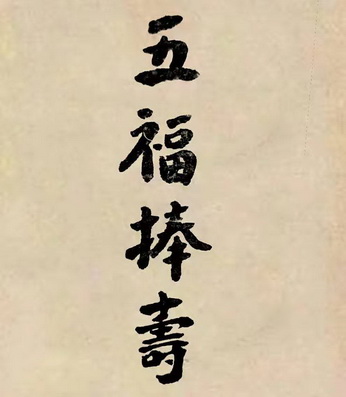 五福捧壽